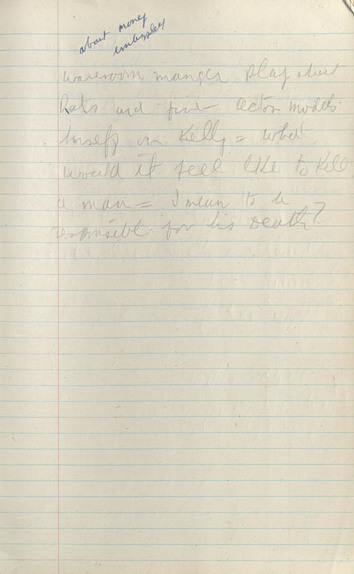 about money
wareroom manger play about
Rats and fire actor models
himself on Kelly = what
would it feel like to kill
a man = I mean to be
responsible for his death?